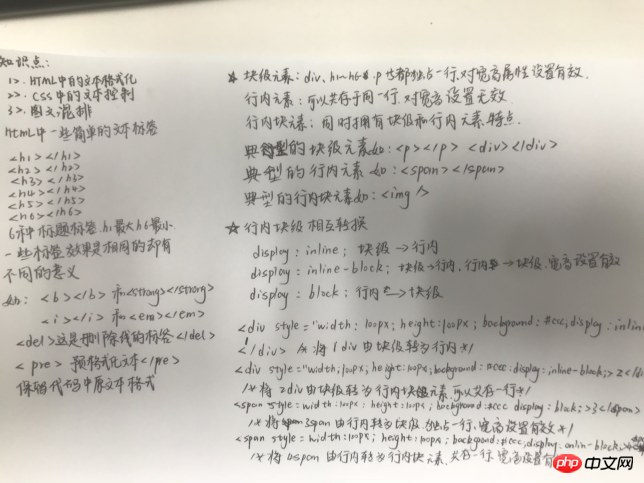 知识点:
1>. HTML中的文本格式化
2>. CSS中的文本控制
3>. 图文混排
HTML中一些简单的文本标签
<h1></h1>
<h2></h2>
<h3></h3>
<h4></h4>
<h5></h5>
<h6></h6>
6种标题标签.h1最大h6最小
一些标签效果是相同的却有
不同的意义
如: <b></b> 和<strong></strong>
<i></i> 和<em></em>
<del>这是删除线的标签</del>
<pre> 预格式化文本</pre>
保留代码中原文本格式
块级元素:div、h1~h6、p 也都独占一行.对宽高属性设置有效.
行内元素:可以共存于同一行.对宽高设置无效.
行内块元素:同时拥有块级和行内元素特点.
典型的块级元素如:<p></p> <div></div>
典型的行内元素如:<span></span>
典型的行内块元素如:<img />
☆ 行内块级相互转换
display: inline; 块级→行内
display: inline-block; 块级→行内,行内→块级.宽高设置有效
display: block; 行内→块级
<div style="width: 100px; height:100px; background:#ccc;display:inline
1</div> /*将1div由块级转为行内*/
<div style="width:100px;height:100px;background:#ccc;display:inline-block;>2</
/*将2div由块级转为行内块元素.可以共存一行*/
<span style=width:100px; height:100px; background:#ccc display:block;>3</span>
/*将3span由行内转为块级.独占一行.宽高设置有效*/
<span style=width:100px; height:100px; background:#ccc;display:onlin-block;>4
/*将4span由行内转为行内块元素.共存一行.宽高设置有
php 中文网